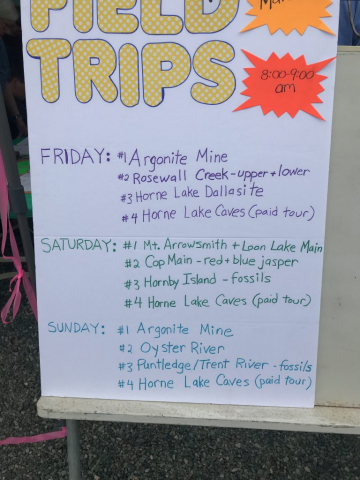 FIELD
TRIPS
8:00-9:00
am
FRIDAY: #1 Argonite Mine
#2 Rosewall Creek - upper + lower
#3 Horne Lake Dallasite
#4 Horne Lake Caves (paid tour)
SATURDAY: #1 Mt. Arrowsmith + Loon Lake Main
#2 Cop Main - red + blue jasper
#3 Hornby Island - fossils
#4 Horne Lake Caves (paid tour)
SUNDAY: #1 Argonite Mine
#2 Oyster River
#3 Puntledge/Trent River - fossils
#4 Horne Lake Caves (paid tour)